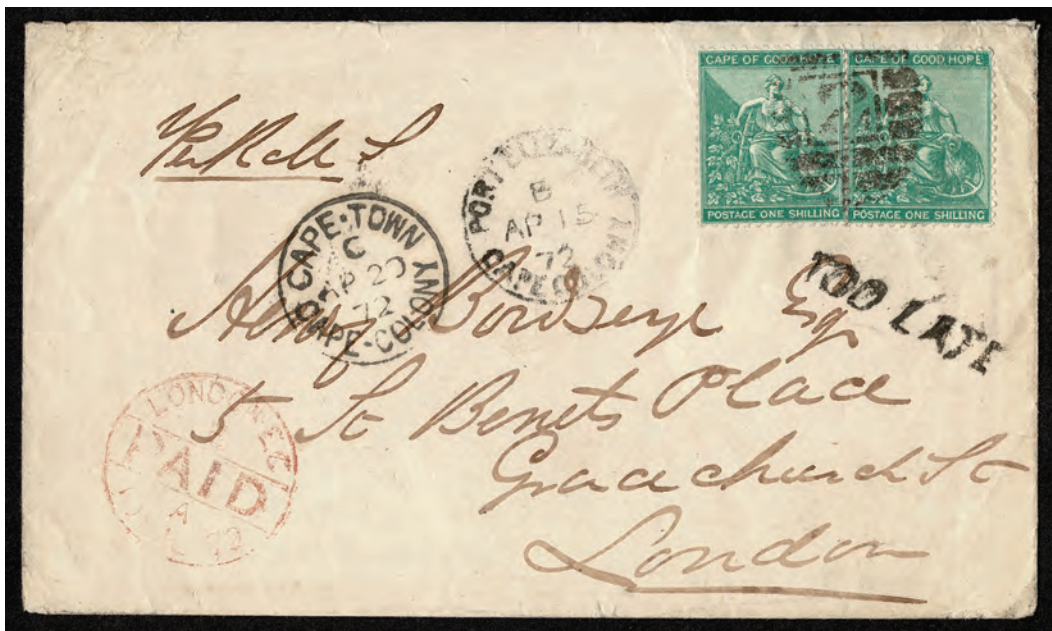 CAPE OF GOOD HOPE CAPE OF GOOD HOPE
POSTAGE ONE SHILLING POSTAGE ONE SHILLING
PORT ELIZABETH
B
AP 15
72
CAPE COLONY
CAPE·TOWN
C
AP 20
72
CAPE·COLONY
TOO LATE
Henry Esq
5 St Benets Place
Gracechurch St
London
LONDON E.C
PAID
A
72